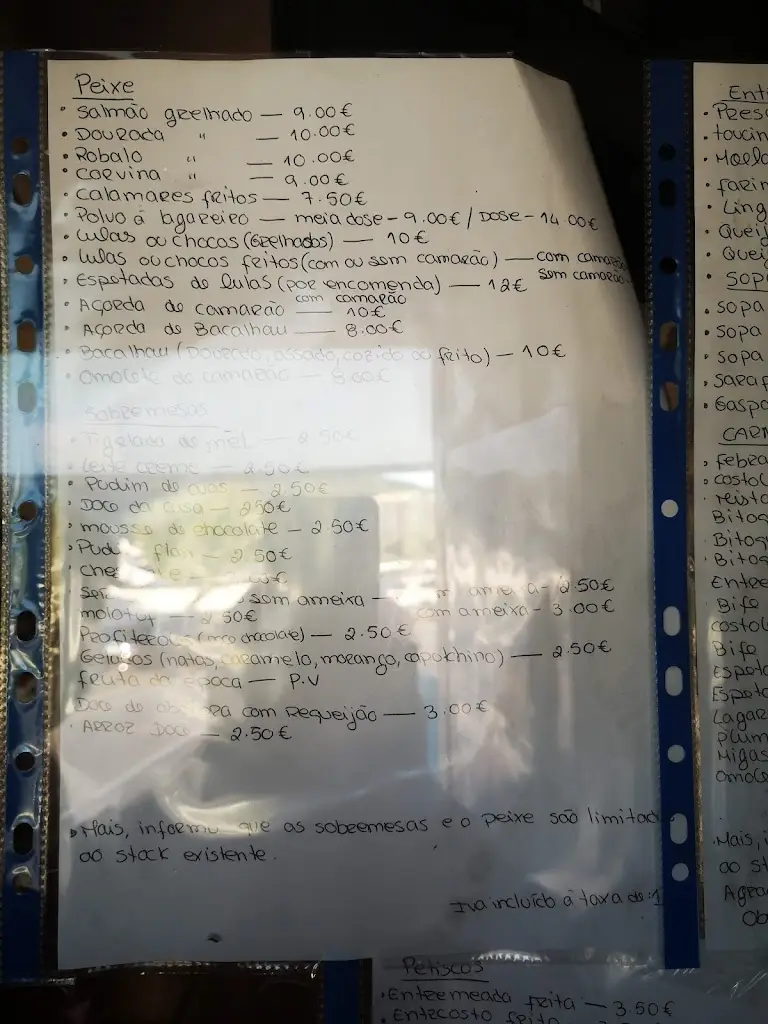 Peixe
• Salmão grelhado — 9.00€
• Dourada " — 10.00€
• Robalo " — 10.00€
• Corvina " — 9.00€
• Calamares fritos — 7.50€
• Polvo á lagareiro — meia dose - 9.00€ / Dose - 14.00€
• Lulas ou chocos (Grelhados) — 10€
• Lulas ou chocos fritos (com ou sem camarão) — com camarão
sem camarão
• Espetadas de lulas (por encomenda) — 12€
com camarão
• Açorda de camarão — 10€
• Açorda de Bacalhau — 8.00€
• Bacalhau (Dourado, assado, cozido ou frito) — 10€
• Omolete de camarão — 8.00€
Sobremesas
• Tigelada de mel — 2.50€
• Leite creme — 2.50€
• Pudim de ovos — 2.50€
• Doce da casa — 2.50€
• mousse de chocolate — 2.50€
• Pudim flan — 2.50€
sem ameixa — 2.50€
com ameixa - 3.00€
molotof — 2.50€
Profiteroles (chocolate) — 2.50€
Gelados (natas, caramelo, morango, capotchino) — 2.50€
fruta da época — P.V
Doce de abóbora com Requeijão — 3.00€
• Arroz Doce — 2.50€
• Mais, informo que as sobremesas e o peixe são limitad
ao stock existente.
Iva incluído á taxa de 1
Ent
• Pres
• toucin
• Moela
• farin
• Ling
• Queij
• Quei
Sopa
• sopa
• sopa
• sopa
• Sarap
• Gaspa
CARN
• febra
• costol
Bitoq
Bitoq
• Bitoq
Entre
Bife
costol
Bife
Espeta
Espeta
Lagar
Plum
Migas
omole
• Mais, i
ao st
Agra
Ob
Petiscos
• Entremeada frita — 3.50€
• Entrecosto frito